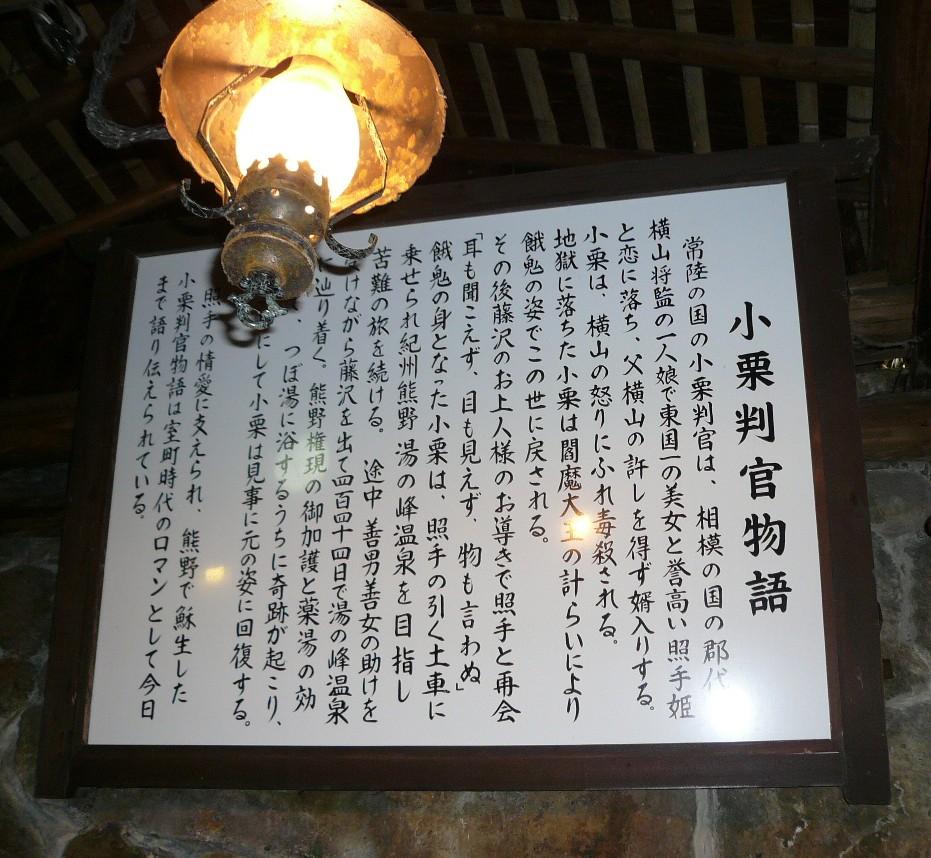 小栗判官物語
常陸の国の小栗判官は、相模の国の郡代
横山将監の一人娘で東国一の美女と誉高い照手姫
と恋に落ち、父横山の許しを得ず婿入りする。
小栗は、横山の怒りにふれ毒殺される。
地獄に落ちた小栗は閻魔大王の計らいにより
餓鬼の姿でこの世に戻される。
その後藤沢のお上人様のお導きで照手と再会
「耳も聞こえず、目も見えず、物も言わぬ」
餓鬼の身となった小栗は、照手の引く土車に
乗せられ紀州熊野湯の峰温泉を目指し
苦難の旅を続ける。途中善男善女の助けを
けながら藤沢を出て四百四十四日で湯の峰温泉
辿り着く。熊野権現の御加護と薬湯の効
、つぼ湯に浴するうちに奇跡が起こり、
にして小栗は見事に元の姿に回復する。
照手の情愛に支えられ、熊野で蘇生した
小栗判官物語は室町時代のロマンとして今日
まで語り伝えられている。